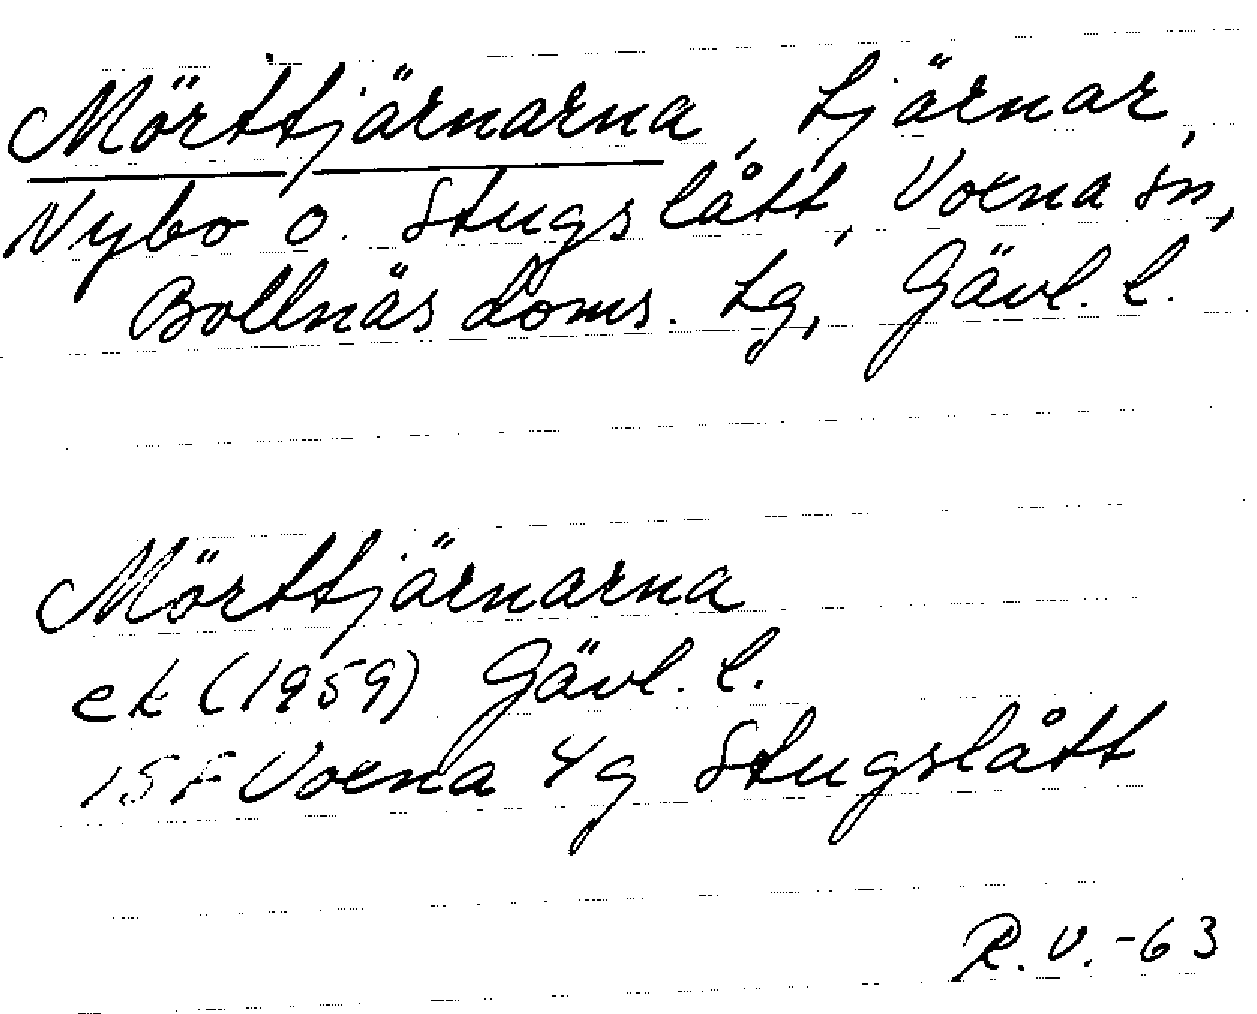 Mörttjärnarna, tjärnar,
Nybo o. Stugslått, Voxna sn,
Bollnäs doms. tg, Gävl. l.
Mörttjärnarna
ek (1959) Gävl. l.
15F Voxna 4g Stugslått
R.V.-63